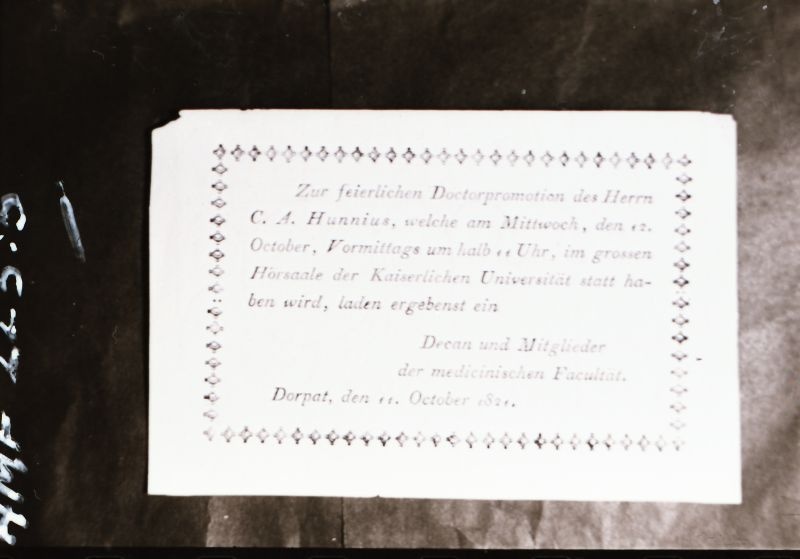 Zur feierlichen Doctorpromotion des Herrn
C. A. Hunnius, welche am Mittwoch, den 12.
October, Vormittags um halb 11 Uhr, im grossen
Hörsaale der Kaiserlichen Universität statt ha-
ben wird, laden ergebenst ein
Decan und Mitglieder
der medicinischen Facultät.
Dorpat, den 11. October 1821.